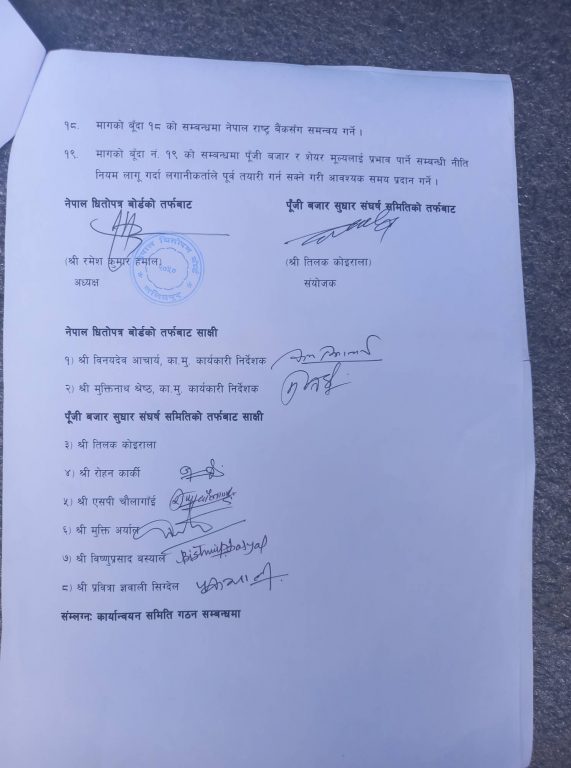 १८. मागको बूँदा १८ को सम्बन्धमा नेपाल राष्ट्र बैंकसंग समन्वय गर्ने ।
१९. मागको बूँदा नं. १९ को सम्बन्धमा पूँजी बजार र शेयर मूल्यलाई प्रभाव पार्ने सम्बन्धी नीति
नियम लागू गर्दा लगानीकर्ताले पूर्व तयारी गर्न सक्ने गरी आवश्यक समय प्रदान गर्ने ।
नेपाल धितोपत्र बोर्डको तर्फबाट
पूँजी बजार सुधार संघर्ष समितिको तर्फबाट
(श्री रमेश कुमार हमाल)
(श्री तिलक कोइराला)
अध्यक्ष
संयोजक
नेपाल धितोपत्र बोर्ड
२०५०
ललितपुर
नेपाल धितोपत्र बोर्डको तर्फबाट साक्षी
१) श्री विनयदेव आचार्य, का.मु. कार्यकारी निर्देशक
२) श्री मुक्तिनाथ श्रेष्ठ, का.मु. कार्यकारी निर्देशक
पूँजी बजार सुधार संघर्ष समितिको तर्फबाट साक्षी
३) श्री तिलक कोइराला
४) श्री रोहन कार्की
५) श्री एसपी चौलागाँई
६) श्री मुक्ति अर्याल
७) श्री विष्णुप्रसाद बस्याल
८) श्री प्रवित्रा ज्ञवाली सिग्देल
संम्लग्न: कार्यान्वयन समिति गठन सम्बन्धमा